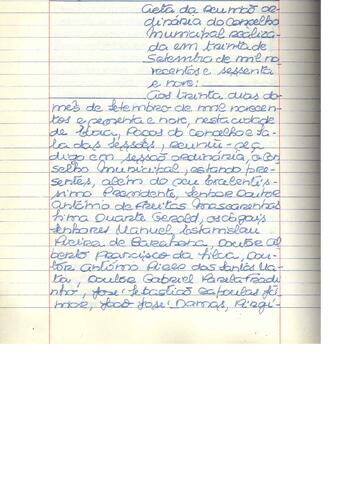 Acta da reunião or-
dinária do Conselho
Municipal realiza-
da em trinta de
Setembro de mil no-
vecentos e sessenta
e nove:
Aos trinta dias do
mês de Setembro de mil novecen-
tos e sessenta e nove, nesta cidade
de Évora, Paços do Concelho e sa-
la das sessões, reuniu-se,
digo em sessão ordinária, o Con-
selho Municipal, estando pre-
sentes, além do seu Excelentís-
simo Presidente, Senhor Doutor
António de Freitas Mascarenhas
Lima Duarte Gerald, os vogais
senhores Manuel Estanislau
Vieira de Barahona, Doutor Al-
berto Francisco da Silva, Dou-
tor António Pires dos Santos
Doutor Gabriel
José Sebastião
João José Damas,